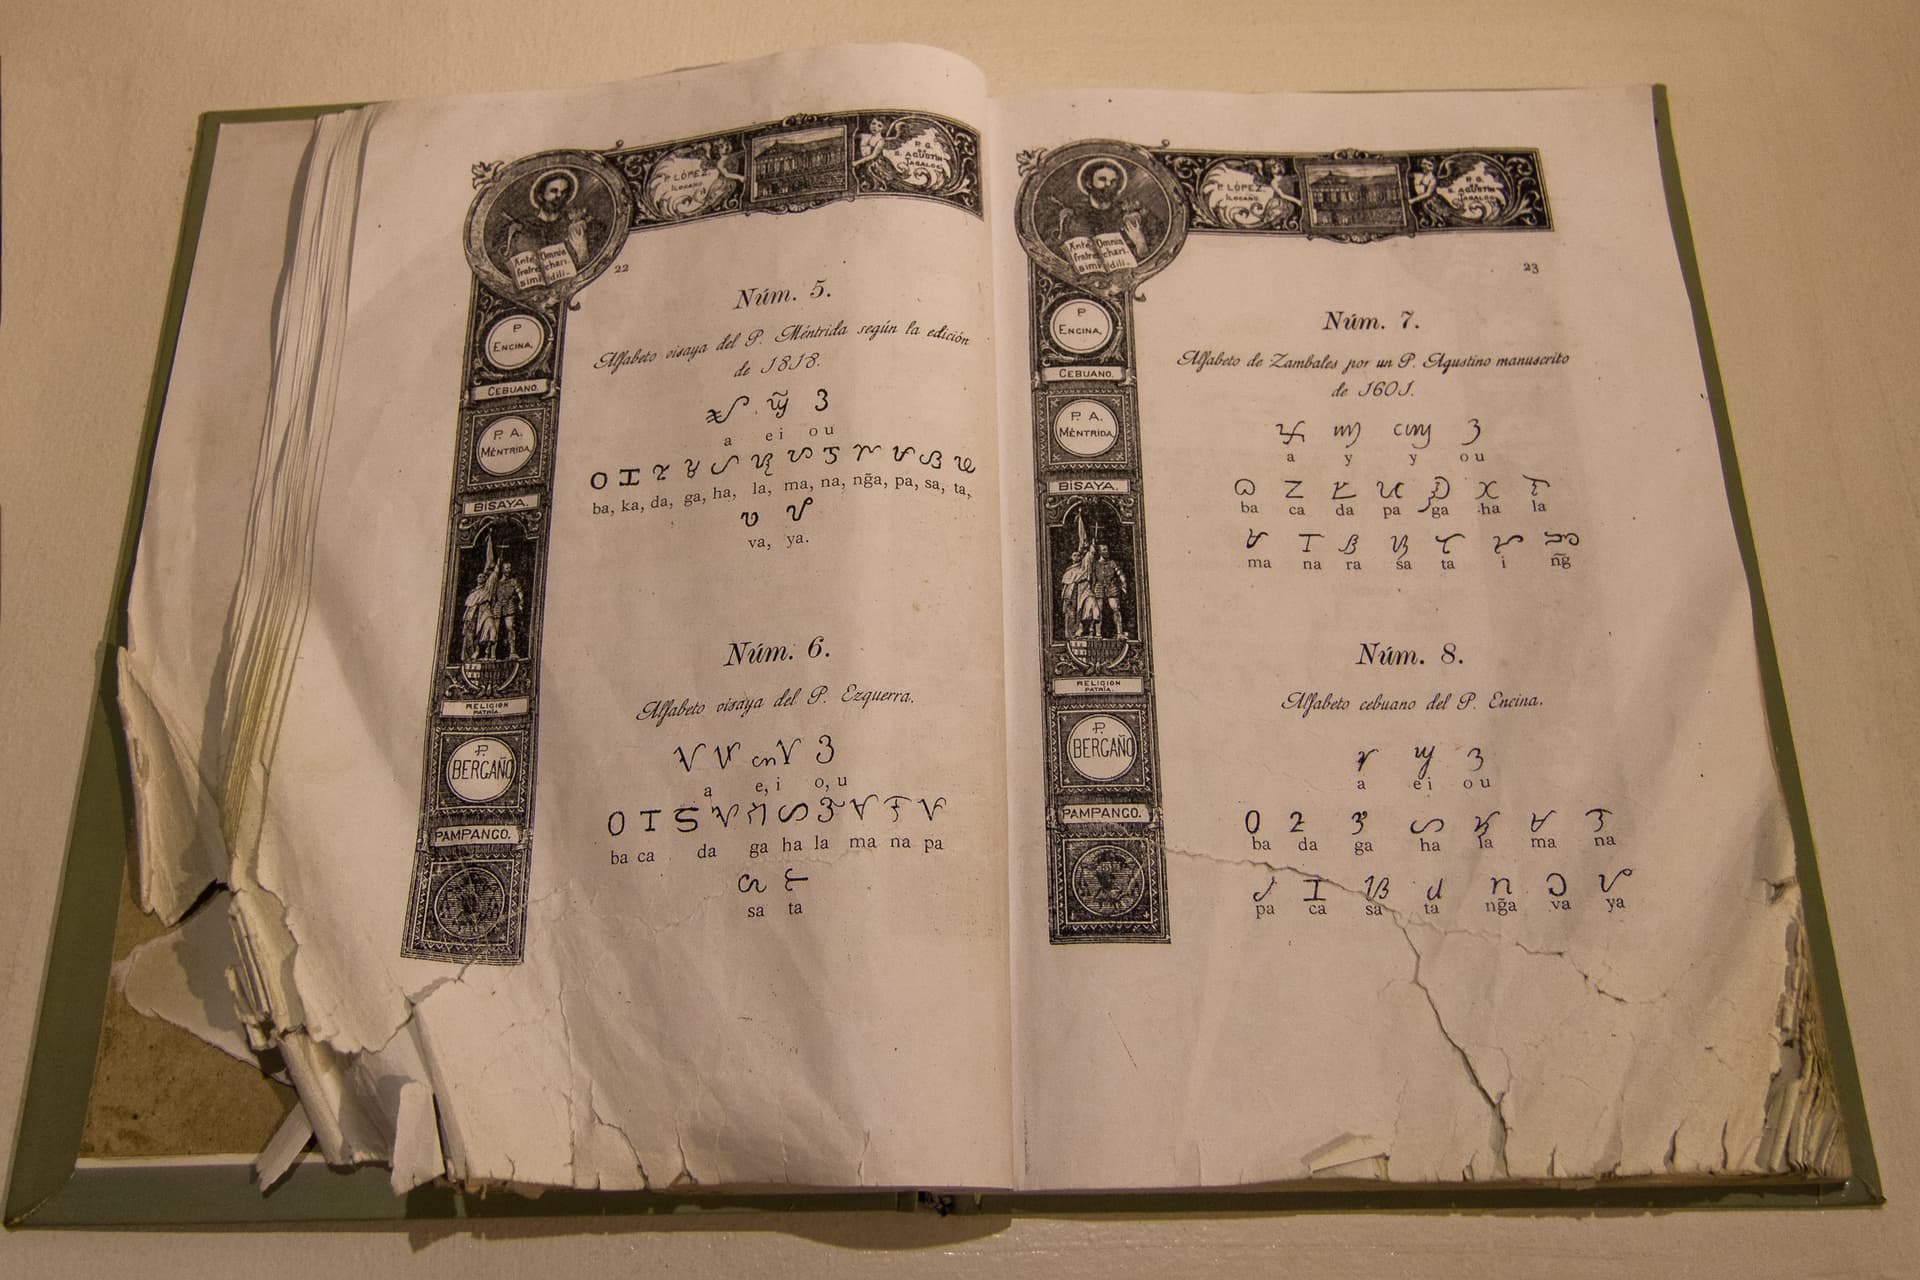 P. LÓPEZ.
ILOCANO
P. G.
DE
S. AGUSTIN
TAGALOG
Ante Omnia
fratres chari.
simi dili-
22
P
ENCINA,
CEBUANO.
P. A.
MÉNTRIDA
BISAYA.
RELIGION
PATRIA.
P.
BERGAÑO
PAMPANGO.
Núm. 5.
Alfabeto visaya del P. Méntrida según la edición
de 1818.
a ei ou
ba, ka, da, ga, ha, la, ma, na, ng̃a, pa, sa, ta,
va, ya.
Núm. 6.
Alfabeto visaya del P. Ezguerra.
a e, i o, u
ba ca da ga ha la ma na pa
sa ta
P. LÓPEZ.
ILOCANO
P. G.
S. AGUSTIN
TAGALOG
Ante Omnia
fratres chari.
simi dili-
23
P
ENCINA,
CEBUANO.
P. A.
MÉNTRIDA
BISAYA.
RELIGION
PATRIA.
P.
BERGAÑO
PAMPANGO.
Núm. 7.
Alfabeto de Zambales por un P. Agustino manuscrito
de 1601.
a y y ou
ba ca da pa ga ha la
ma na ra sa ta i ng̃
Núm. 8.
Alfabeto cebuano del P. Encina.
a ei ou
ba da ga ha la ma na
pa ca sa ta ng̃a va ya